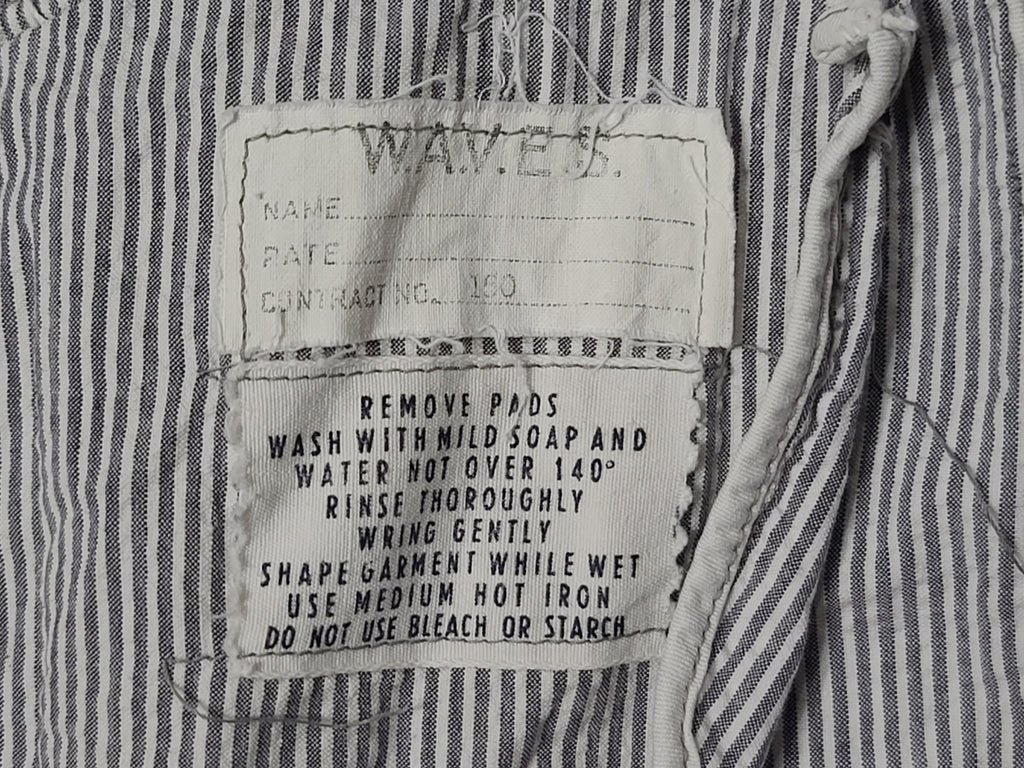 W.A.V.E.S.
NAME
RATE
CONTRACT NO. 160
REMOVE PADS
WASH WITH MILD SOAP AND
WATER NOT OVER 140°
RINSE THOROUGHLY
WRING GENTLY
SHAPE GARMENT WHILE WET
USE MEDIUM HOT IRON
DO NOT USE BLEACH OR STARCH